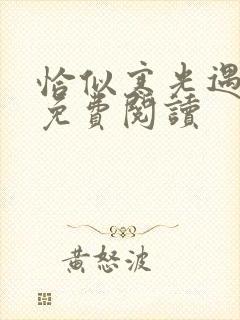 恰似寒光遇
免費閱讀
黃怒波